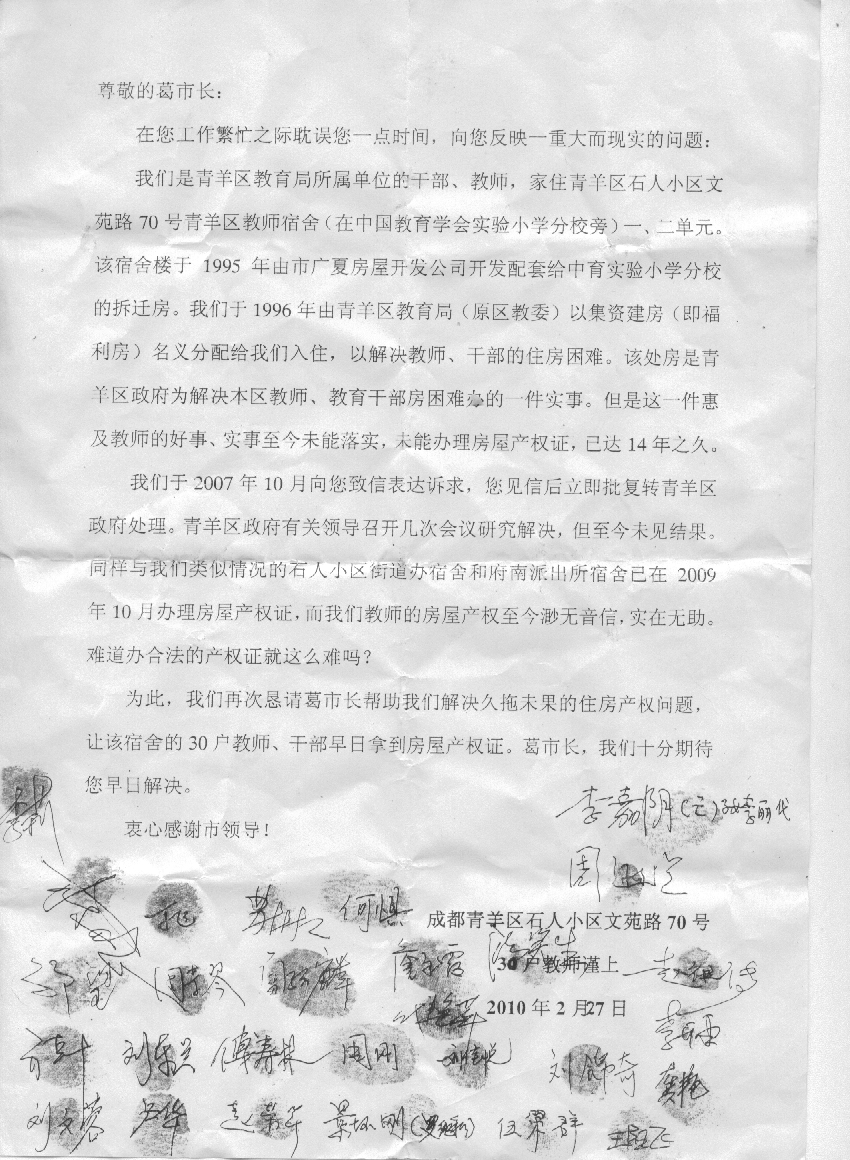 尊敬的葛市长：
在您工作繁忙之际耽误您一点时间，向您反映一重大而现实的问题：
我们是青羊区教育局所属单位的干部、教师，家住青羊区石人小区文
苑路 70 号青羊区教师宿舍（在中国教育学会实验小学分校旁）一、二单元。
该宿舍楼于 1995 年由市广夏房屋开发公司开发配套给中育实验小学分校
的拆迁房。我们于 1996 年由青羊区教育局（原区教委）以集资建房（即福
利房）名义分配给我们入住，以解决教师、干部的住房困难。该处房是青
羊区政府为解决本区教师、教育干部房困难办的一件实事。但是这一件惠
及教师的好事、实事至今未能落实，未能办理房屋产权证，已达 14 年之久。
我们于 2007 年 10 月向您致信表达诉求，您见信后立即批复转青羊区
政府处理。青羊区政府有关领导召开几次会议研究解决，但至今未见结果。
同样与我们类似情况的石人小区街道办宿舍和府南派出所宿舍已在 2009
年 10 月办理房屋产权证，而我们教师的房屋产权至今渺无音信，实在无助。
难道办合法的产权证就这么难吗？
为此，我们再次恳请葛市长帮助我们解决久拖未果的住房产权问题，
让该宿舍的 30 户教师、干部早日拿到房屋产权证。葛市长，我们十分期待
您早日解决。
李嘉阴
衷心感谢市领导！
何惧
成都青羊区石人小区文苑路 70 号
30 户教师谨上
2010 年 2 月27 日
周刚